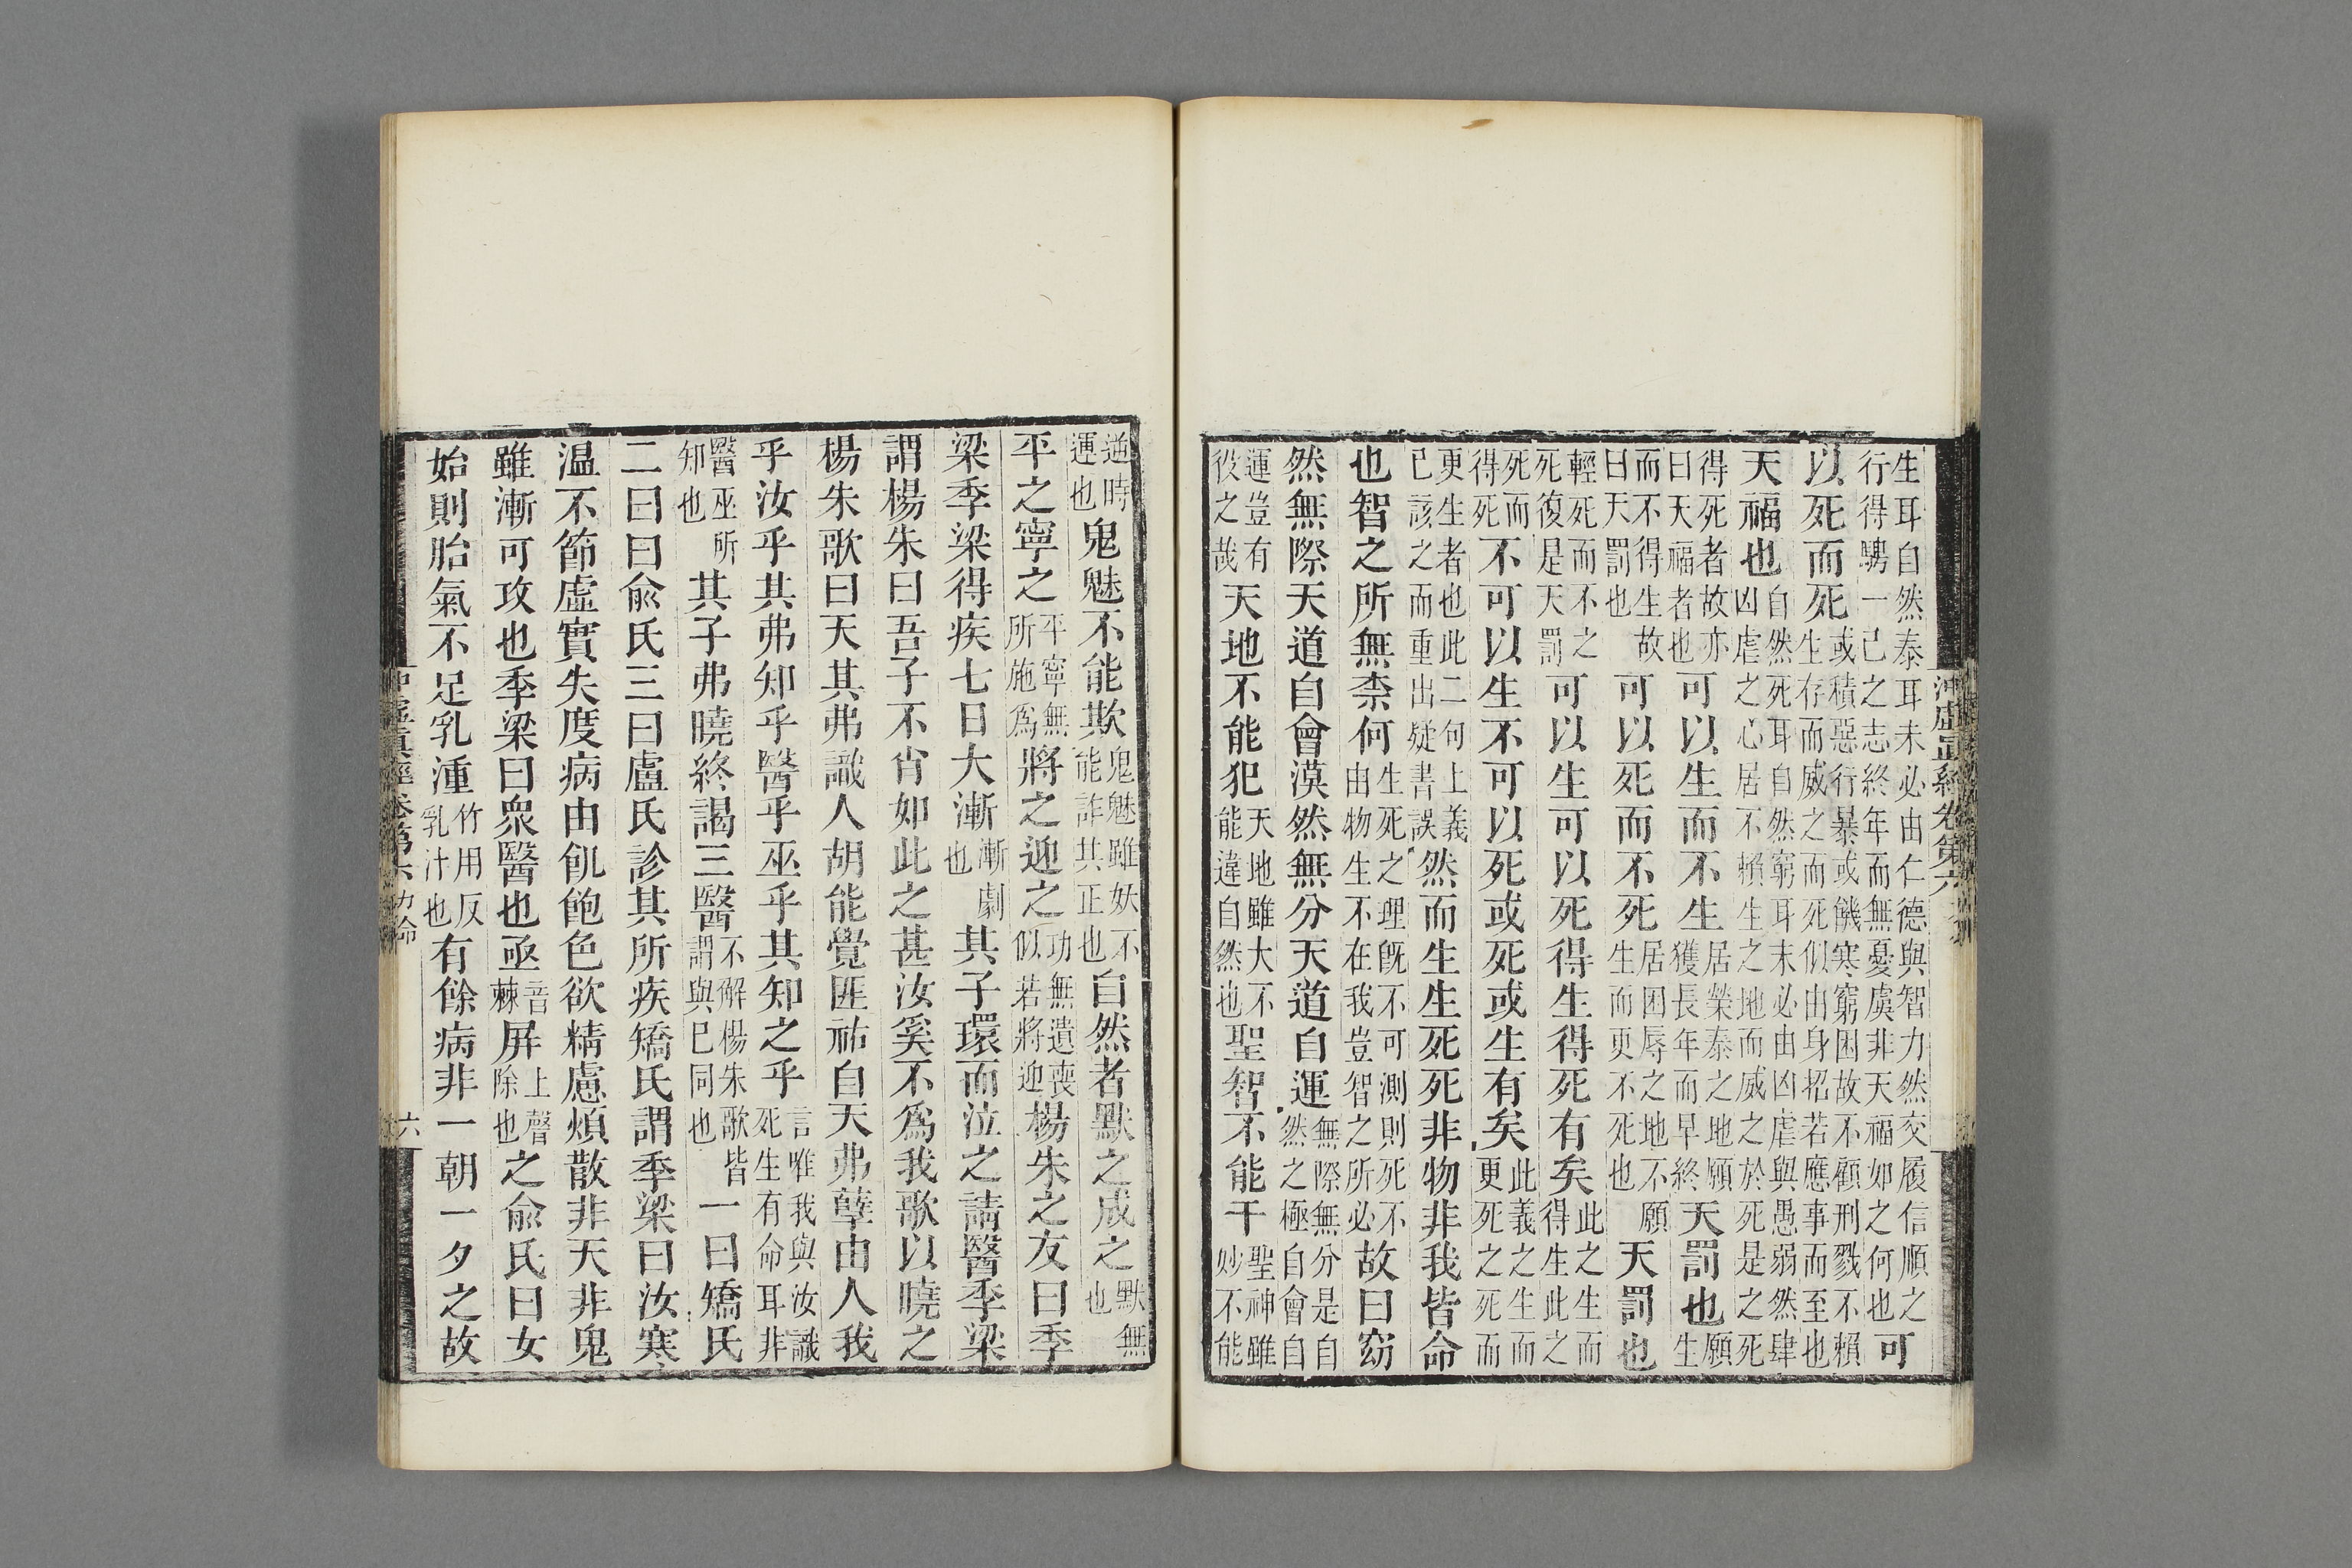 生耳自然泰耳未必由仁德與智力然交履信順之行得騁一己之志終年而無憂虞非天福如之何也可
以死而死或積惡行暴或饑寒窮困故不顧刑戮不賴生存而威之而死似由身招若應事而至也
天福也自然死耳自然窮耳未必由凶虐與愚弱然肆凶虐之心居不賴生之地而威之於死是之死
得死者故亦曰天福者也可以生而不生居榮泰之地願獲長年而早終天罰也願生
而不得生故曰天罰也可以死而不死居困辱之地不願生而更不死也天罰也
輕死而不之死復是天罰可以生可以死得生得死有矣此之生而得生此之
死而得死不可以生不可以死或死或生有矣此義之生而更死之死而
更生者也此二句上義已該之而重出疑書誤然而生生死死非物非我皆命
也智之所無柰何生死之理既不可測則死不由物生不在我豈智之所必故曰窈
然無際天道自會漠然無分天道自運無際無分是自然之極自會自
運豈有役之哉天地不能犯天地雖大不能違自然也聖智不能干聖神雖妙不能
逆時運也鬼魅不能欺鬼魅雖妖不能詐其正也自然者默之成之默無也
平之寧之平寧無所施爲將之迎之功無遺喪似若將迎楊朱之友曰季
梁季梁得疾七日大漸漸劇也其子環而泣之請醫季梁
謂楊朱曰吾子不肖如此之甚汝奚不爲我歌以曉之
楊朱歌曰天其弗識人胡能覺匪祐自天弗孽由人我
乎汝乎其弗知乎醫乎巫乎其知之乎言唯我與汝識死生有命耳非
醫巫所知也其子弗曉終謁三醫不解楊朱歌皆謂與己同也一曰矯氏
二曰曰俞氏三曰盧氏診其所疾矯氏謂季梁曰汝寒
温不節虛實失度病由飢飽色欲精慮煩散非天非鬼
雖漸可攻也季梁曰衆醫也亟音棘屏上聲除也之俞氏曰女
始則胎氣不足乳湩竹用反乳汁也有餘病非一朝一夕之故
六